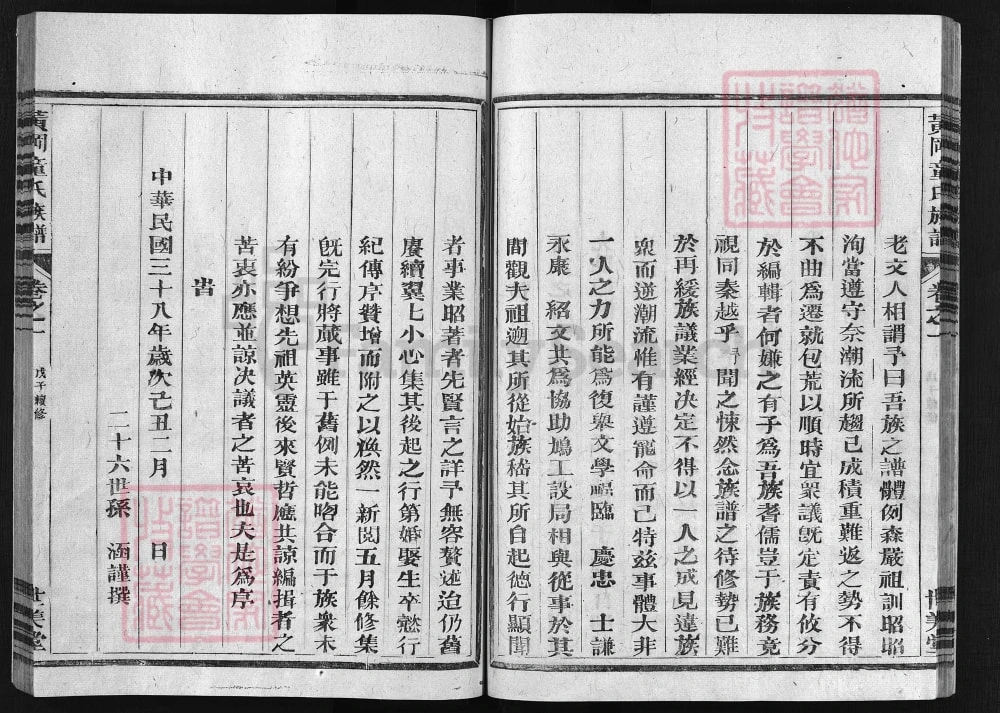 黃岡童氏族譜 卷之一 戊子續修 世美堂
老文人相謂予曰吾族之譜體例森嚴祖訓昭昭
洵當遵守奈潮流所趨已成積重難返之勢不得
不曲爲遷就包荒以順時宜衆議既定責有攸分
於編輯者何嫌之有子爲吾族耆儒豈于族務竟
視同秦越乎予聞之悚然念族譜之待修勢已難
於再緩族議業經決定不得以一人之成見違族
衆而逆潮流惟有謹遵寵命而已特兹事體大非
一人之力所能爲復舉文學 臨 慶忠 士謙
永康 紹文共爲協助鳩工設局相與從事於其
間觀夫祖遡其所從始族嵇其所自起德行顯聞
者事業昭著者先賢言之詳予無容贅述迨仍舊
賡續翼上小心集其後起之行第婚娶生卒懿行
紀傳序贊增而附之以煥然一新閱五月餘修集
既完行將蕆事雖于舊例未能吻合而于族衆未
有紛爭想先祖英靈後來賢哲應其諒編揖者之
苦衷亦應並諒决議者之苦哀也夫是爲序
旹
中華民國三十八年歲次己丑二月 日
二十六世孫 涵謹撰
黃岡童氏族譜 卷之一 戊子續修 世美堂